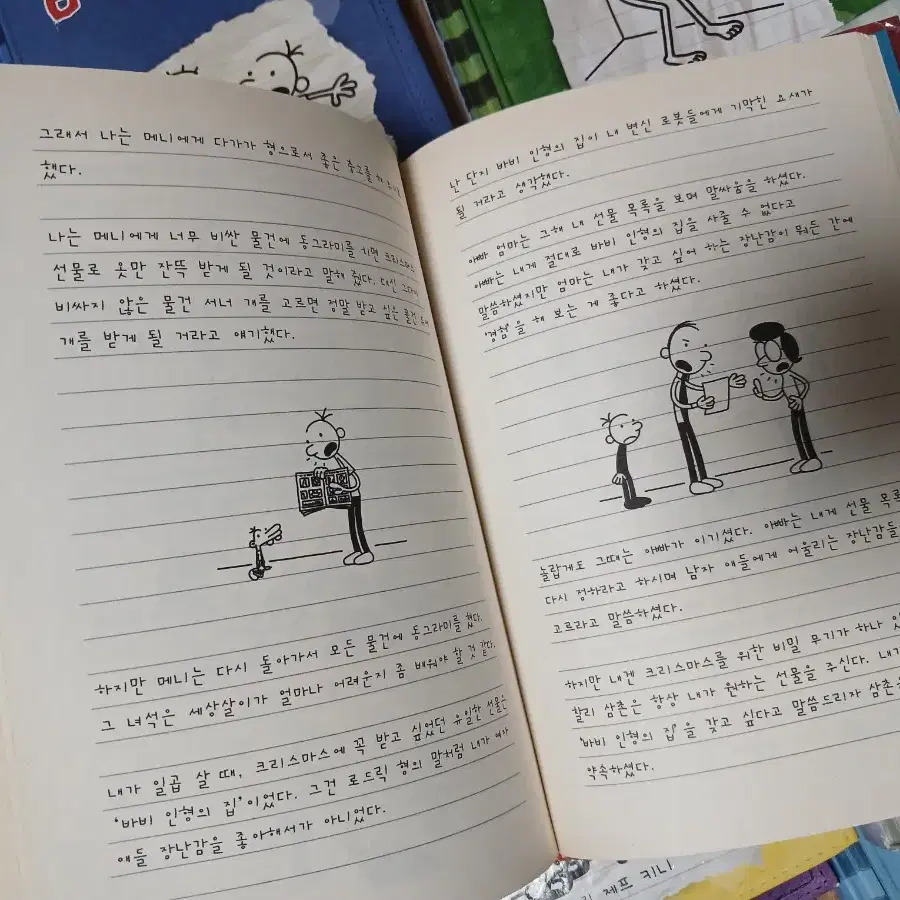 그래서 나는 메니에게 다가가 형으로서 좋은 충고를 해
했다.
나는 메니에게 너무 비싼 물건에 동그라미를 치면 크리스마스
선물로 옷만 잔뜩 받게 될 것이라고 말해 줬다. 대신 그다지
비싸지 않은 물건 서너 개를 고르면 정말 받고 싶은 물건
개를 받게 될 거라고 얘기했다.
하지만 메니는 다시 돌아가서 모든 물건에 동그라미를 쳤다.
그 녀석은 세상살이가 얼마나 어려운지 좀 배워야 할 것 같다.
내가 일곱 살 때, 크리스마스에 꼭 받고 싶었던 유일한 선물은
‘바비 인형의 집’이었다. 그건 로드릭 형의 말처럼 내가 여자
애들 장난감을 좋아해서가 아니었다.
난 단지 바비 인형의 집이 내 변신 로봇들에게 기막힌 요새가
될 거라고 생각했다.
아빠 엄마는 그해 내 선물 목록을 보며 말싸움을 하셨다.
아빠는 내게 절대로 바비 인형의 집을 사줄 수 없다고
말씀하셨지만 엄마는 내가 갖고 싶어 하는 장난감이 뭐든 간에
‘경험’을 해 보는 게 좋다고 하셨다.
놀랍게도 그때는 아빠가 이기셨다. 아빠는 내게 선물 목록
다시 정하라고 하시며 남자 애들에게 어울리는 장난감들
고르라고 말씀하셨다.
하지만 내겐 크리스마스를 위한 비밀 무기가 하나
찰리 삼촌은 항상 내가 원하는 선물을 주신다. 내가
‘바비 인형의 집’을 갖고 싶다고 말씀드리자 삼촌은
약속하셨다.
제프 키니